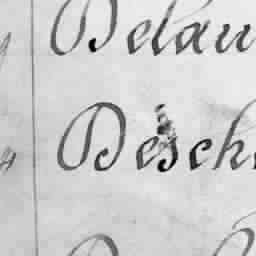 Delau
Desch